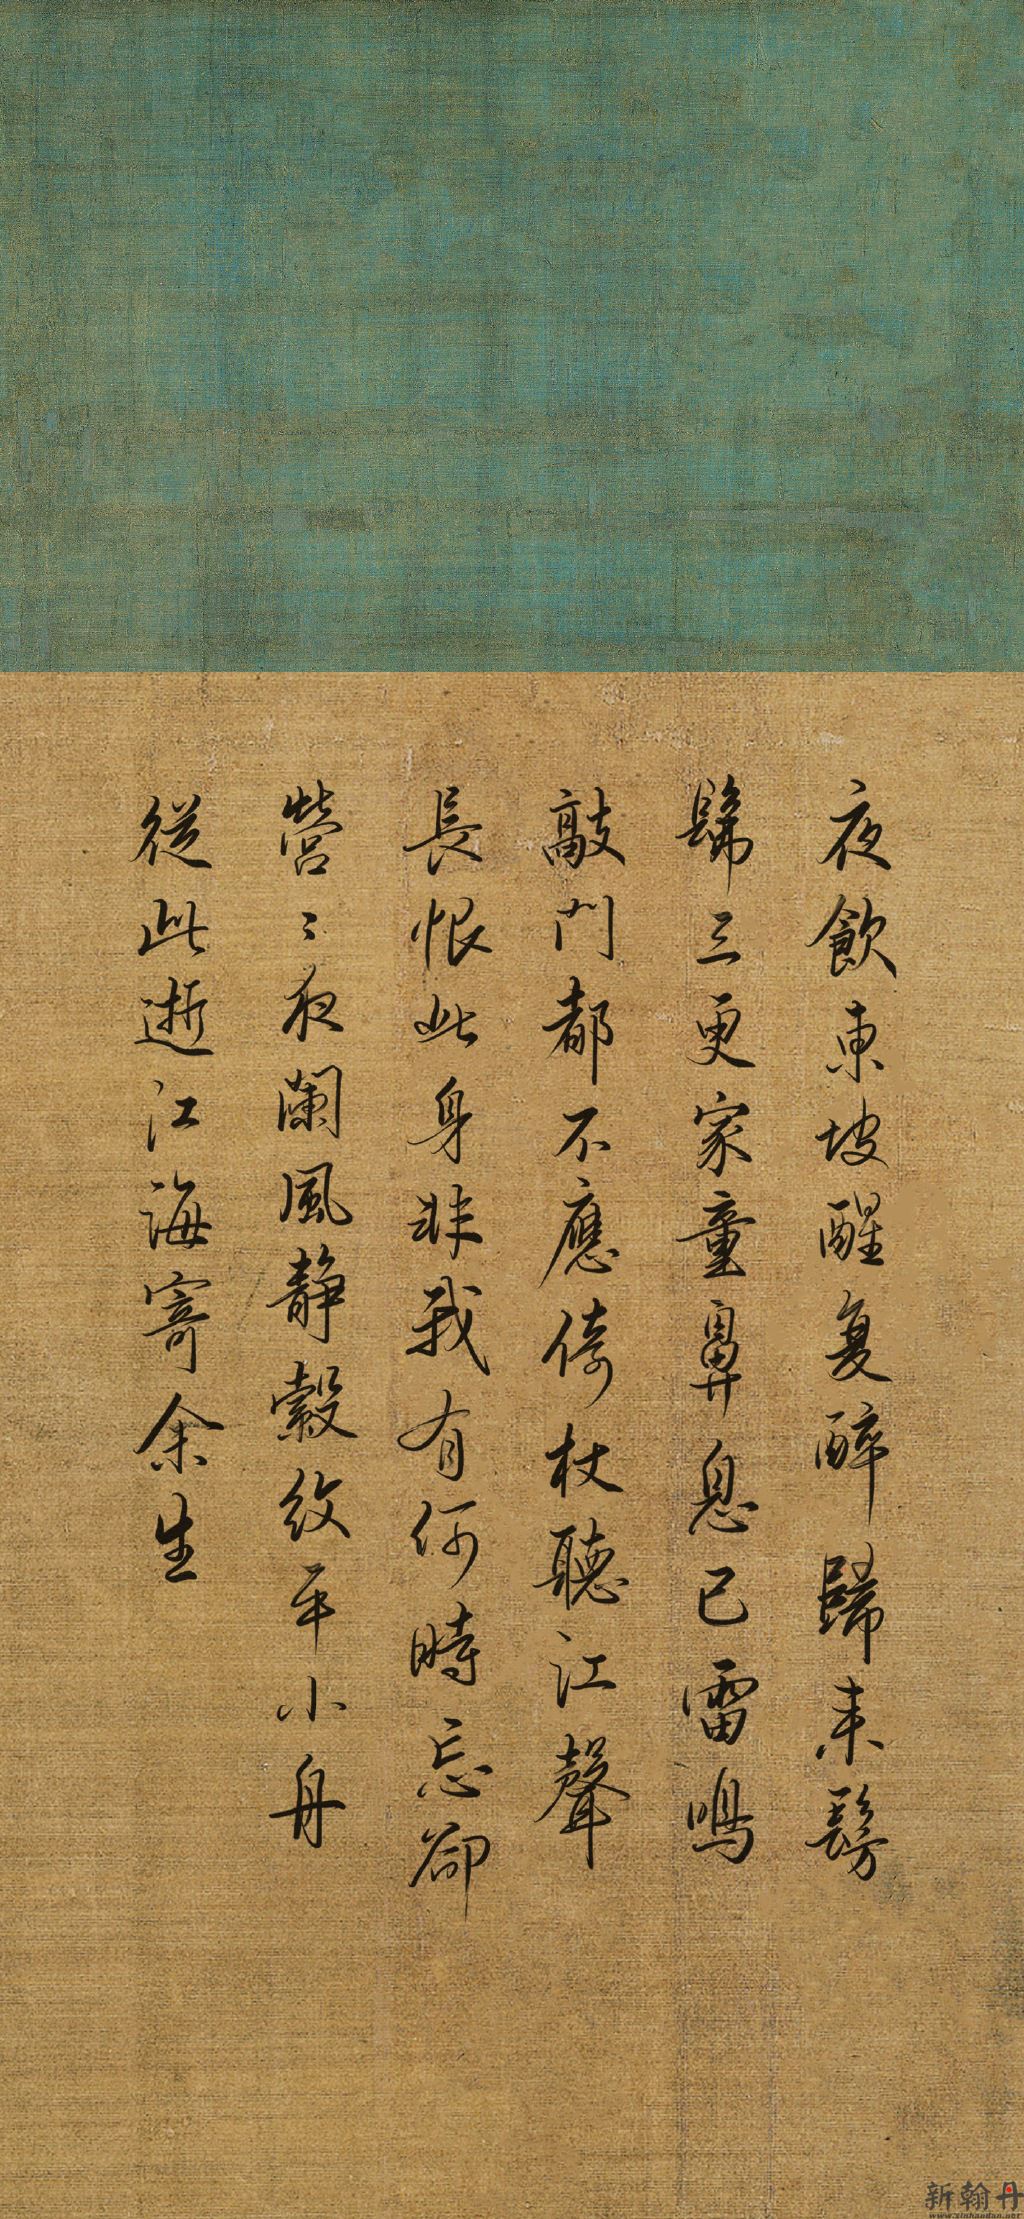 夜飲東坡醒复醉歸来髣
歸三更家童鼻息已雷鳴
敲門都不應倚杖聽江聲
長恨此身非我有何時忘卻
營〻夜闌風静縠紋平小舟
從此逝江海寄余生
新翰丹
www.xinhandan.net